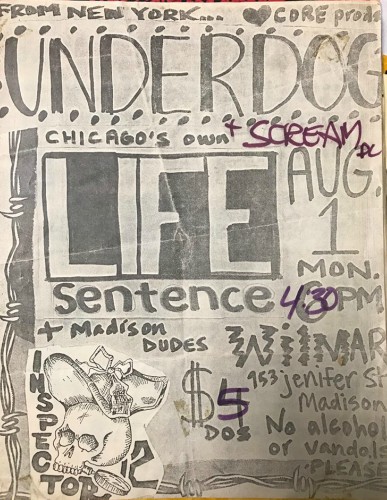 FROM NEW YORK... CORE prods
UNDERDOG
CHICAGO'S OWN + SCREAM DC
LIFE
Sentence
AUG.
1
MON.
4:30 PM
+ Madison
DUDES
INSPECTOR
12
WilMAR
953 jenifer St
Madison
$5
DOS
No alcohol
or vandals
PLEASE